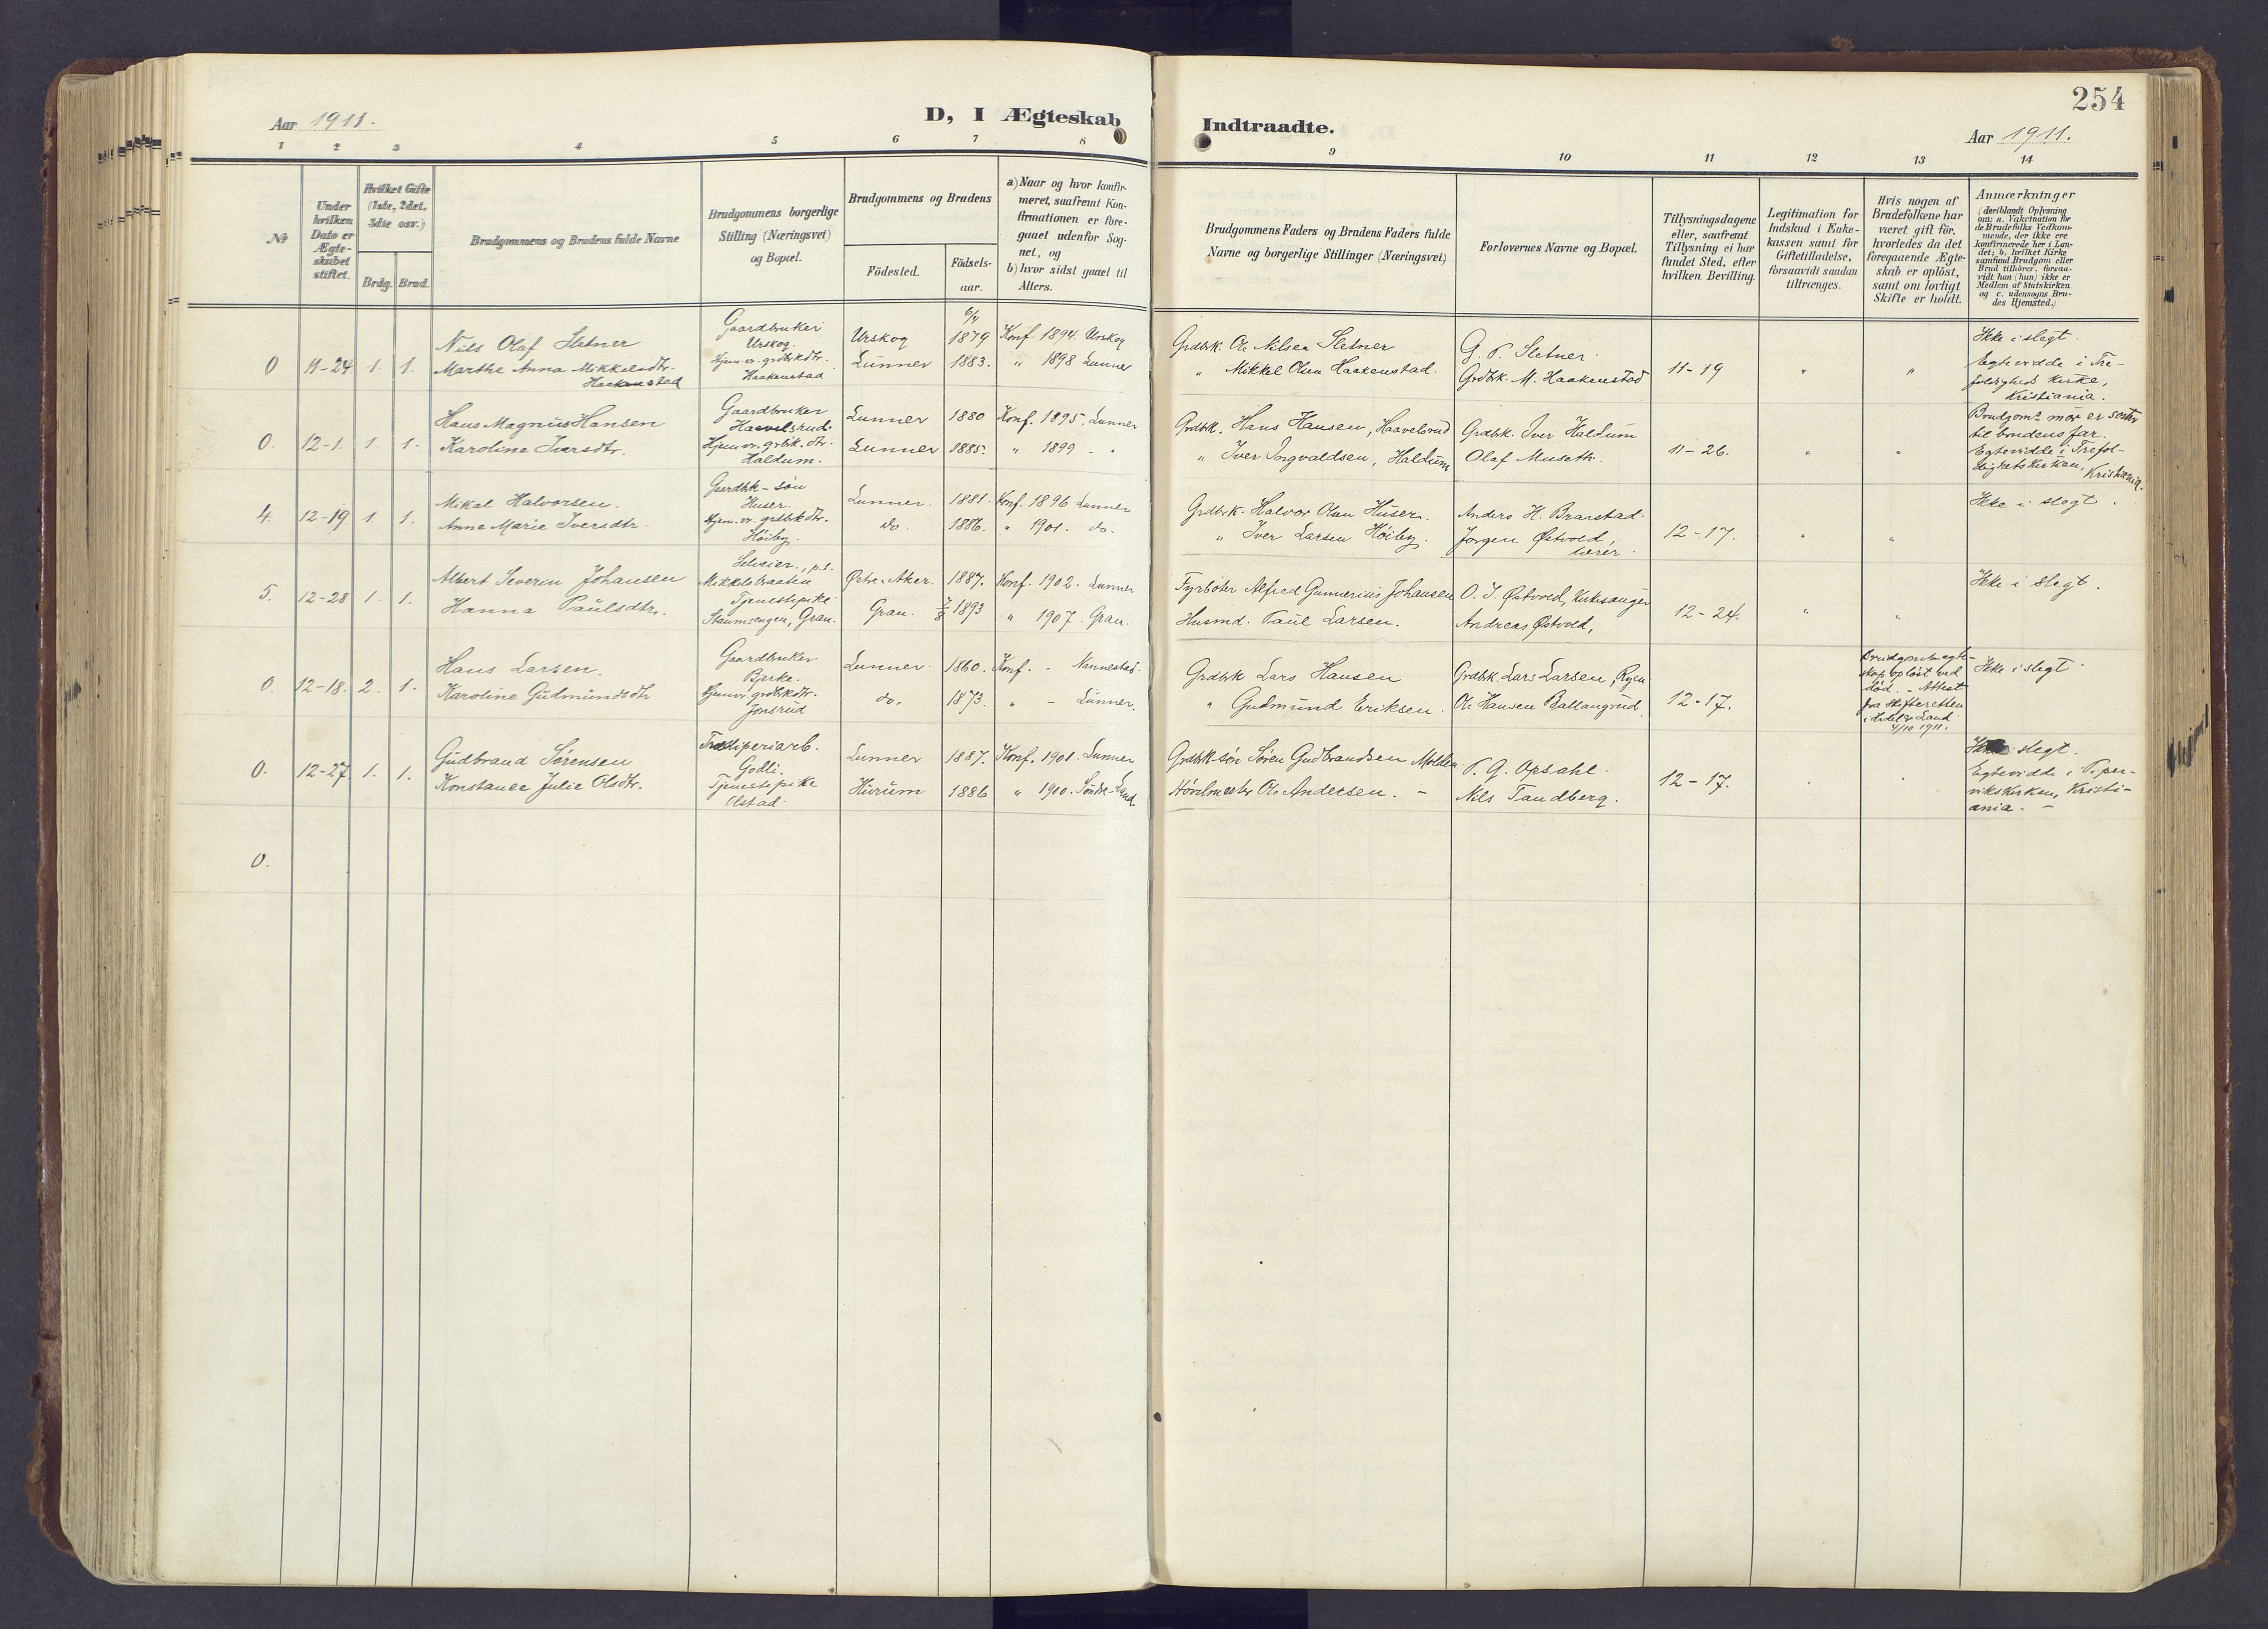 254
Aar 1911.
D, I Ægteskab
Indtraadte.
Aar 1911.
1 2 3 4 5 6 7 8
9 10 11 12 13 14
No
Under hvilken Dato er Ægteskabet stiftet.
Hvilket Gifte (1ste, 2det, 3die osv.)
Brdg. Brud.
Brudgommens og Brudens fulde Navne
Brudgommens borgerlige Stilling (Næringsvei) og Bopæl.
Brudgommens og Brudens
Födested.
Födsels-aar.
a) Naar og hvor konfir-
meret, saafremt Kon-
firmationen er fore-
gaaet udenfor Sog-
net, og
b) hvor sidst gaaet til
Alters.
Brudgommens Faders og Brudens Faders fulde
Navne og borgerlige Stillinger (Næringsvei)
Forlovernes Navne og Bopæl.
Tillysningsdagene
eller, saafremt
Tillysning ei har
fundet Sted, efter
hvilken Bevilling.
Legitimation for
Indskud i Enke-
kassen samt for
Giftetilladelse,
forsaavidt saadan
tiltrænges.
Hvis nogen af
Brudefolkene har
været gift för,
hvorledes da det
foregaaende Ægte-
skab er oplöst,
samt om lovligt
Skifte er holdt.
Anmærkninger
(deriblandt Oplysning
om: a. Vakcination for
de Brudefolks Vedkom-
mende, der ikke ere
konfirmerede her i Lan-
det; b. hvilket Kirke
samfund Brudgom eller
Brud tilhörer, forsaa-
vidt han (hun) ikke er
Medlem af Statskirken
og c. udensogns Bru-
des Hjemsted.)
0 11-24 1. 1.
Nils Olaf Sletner
Marthe Anna Mikkelsdtr.
Haakenstad
Gaardbruker
Urskog.
Hjem.v. grdbrk dtr.
Haakenstad
Urskog 6/4 1879 Konf. 1894. Urskog
Lunner 1883. " 1898 Lunner
Grdbrk. Ole Nilsen Sletner
" Mikkel Olsen Haakenstad.
G. P. Sletner.
Grdbrk. M. Haakenstad
11-19 " "
Ikke i slegt.
Egtevidde i Tre-
foldigheds Kirke,
Kristiania.
0. 12-1. 1. 1.
Hans Magnus Hansen
Karoline Iversdtr.
Gaardbruker
Haavelsrud.
Hjem.v. grbrk. dtr.
Haldum.
Lunner 1880 Konf. 1895. Lunner
Lunner 1885. " 1899 - "
Grdbrk. Hans Hansen, Haavelsrud
" Iver Ingvaldsen, Haldum
Grdbrk. Iver Haldum
Olaf Museth.
11-26. " "
Brudgoms mor er søster
til brudens far.
Egtevidde i Trefol-
dighetskirken, Kristiania.
4. 12-19 1. 1.
Mikal Halvorsen.
Anne Marie Iversdtr.
Gaardbrk-søn
Huser.
Hjem.v. grdbrk dtr.
Høiby.
Lunner. 1881. Konf. 1896 Lunner
do. 1886. " 1901. do.
Grdbrk. Halvor Olsen Huser.
" Iver Larsen Høiby.
Anders H. Brarstad.
Jørgen Østvold,
lærer.
12-17. " "
Ikke i slegt.
5. 12-28 1. 1.
Albert Severin Johansen
Hanna Paulsdtr.
Selveier., p.t.
Mikkelsbraaten
Tjenestepike
Staumsengen, Gran.
Østre Aker. 1887. Konf. 1902. Lunner
Gran. 7/8 1893 " 1907. Gran.
Fyrbøter Alfred Gunnerius Johansen
Husmd. Paul Larsen.
O. J. Østvold, Kirkesanger
Andreas Østvold,
12-24. " "
Ikke i slegt.
0. 12-18. 2. 1.
Hans Larsen.
Karoline Gudmundsdtr
Gaardbruker
Bjerke.
Hjem.v. grdbrk dtr.
Jonsrud
Lunner. 1860. Konf. - Nannestad.
do. 1873. " - Lunner.
Grdbrk Lars Hansen
" Gudmund Eriksen.
Grdbrk. Lars Larsen, Ryen.
Ole Hansen Ballangrud.
12-17.
Brudgomens egte-
skap opløst ved
død. - Attest
fra skifteretten
i Hadel. & Land
4/10 1911.
Ikke i slegt.
0. 12-27 1. 1.
Gudbrand Sørensen
Konstance Julie Olsdtr.
Træsliperiarb.
Godli.
Tjenestepike
Olstad.
Lunner 1887. Konf. 1901. Lunner
Hurum 1886 " 1900. Søndre-Land.
Grdbrk-søn Søren Gudbrandsen Molden
Høvelmester Ole Andersen. -
P. G. Opsahl.
Nils Tandberg.
12-17. . .
Ikke i slegt.
Egteviddde i Piper-
vikskirken, Kristi-
ania. -
0.